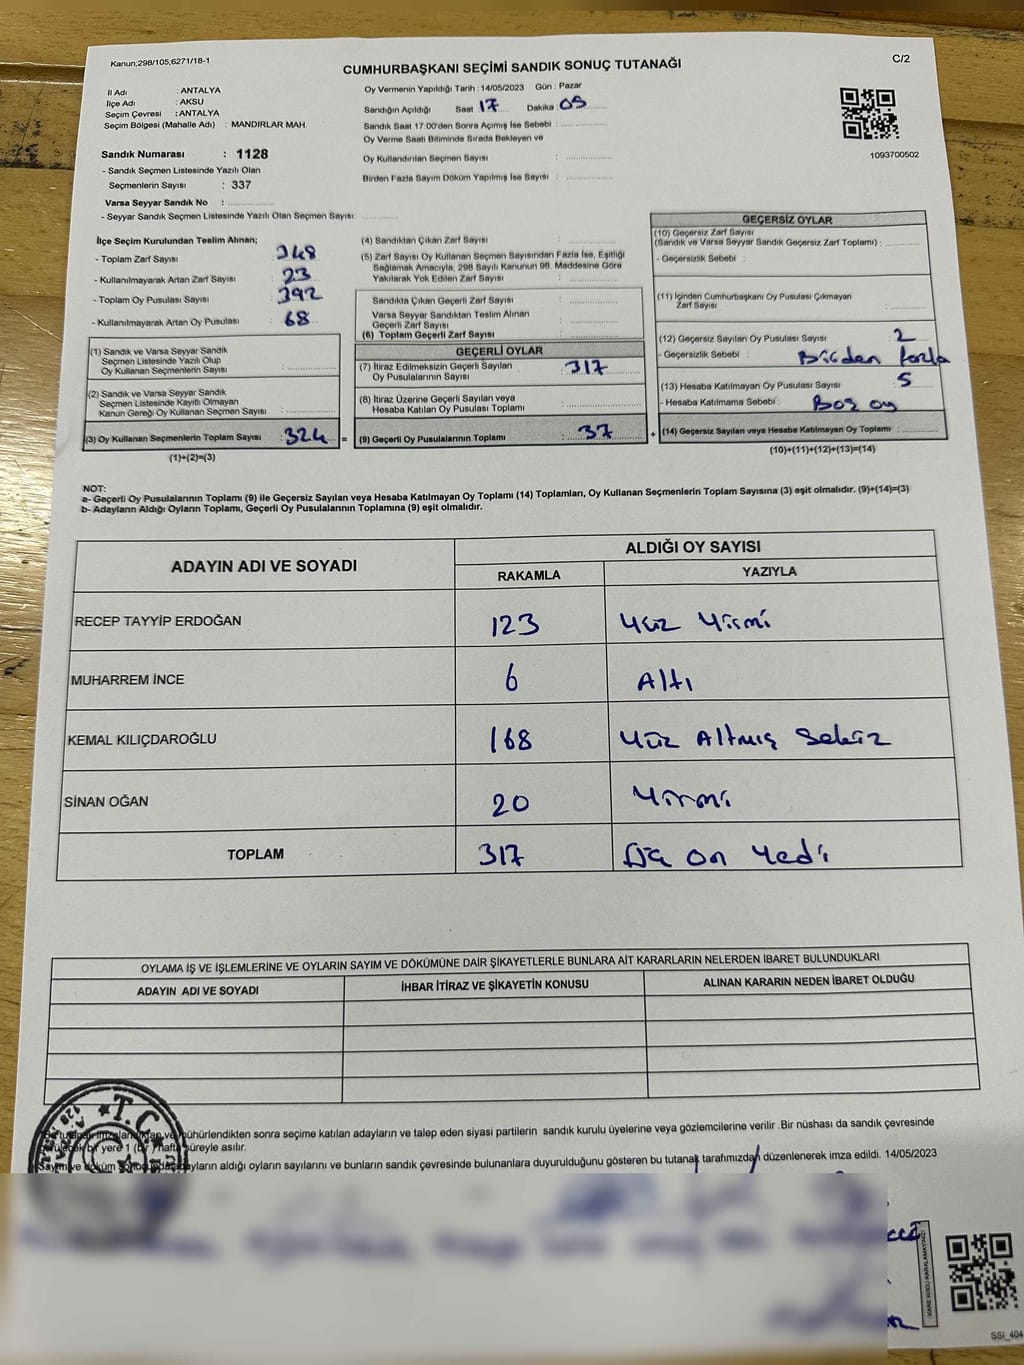 Kanun;298/105,6271/18-1
C/2
CUMHURBAŞKANI SEÇİMİ SANDIK SONUÇ TUTANAĞI
İl Adı : ANTALYA
İlçe Adı : AKSU
Seçim Çevresi : ANTALYA
Seçim Bölgesi (Mahalle Adı) : MANDIRLAR MAH.
Oy Vermenin Yapıldığı Tarih :14/05/2023 Gün : Pazar
Sandığın Açıldığı Saat 17 Dakika : 05
Sandık Saat 17:00'den Sonra Açımış İse Sebebi :
Oy Verme Saati Bitiminde Sırada Bekleyen ve
Oy Kullandırılan Seçmen Sayısı :
Birden Fazla Sayım Döküm Yapılmış İse Sayısı :
1093700502
Sandık Numarası : 1128
- Sandık Seçmen Listesinde Yazılı Olan
Seçmenlerin Sayısı : 337
Varsa Seyyar Sandık No :
- Seyyar Sandık Seçmen Listesinde Yazılı Olan Seçmen Sayısı:
İlçe Seçim Kurulundan Teslim Alınan;
- Toplam Zarf Sayısı : 348
- Kullanılmayarak Artan Zarf Sayısı : 23
- Toplam Oy Pusulası Sayısı : 392
- Kullanılmayarak Artan Oy Pusulası : 68
(1) Sandık ve Varsa Seyyar Sandık
Seçmen Listesinde Yazılı Olup
Oy Kullanan Seçmenlerin Sayısı :
(2) Sandık ve Varsa Seyyar Sandık
Seçmen Listesinde Kayıtlı Olmayan
Kanun Gereği Oy Kullanan Seçmen Sayısı :
(3) Oy Kullanan Seçmenlerin Toplam Sayısı : 324 =
(1)+(2)=(3)
(4) Sandıktan Çıkan Zarf Sayısı :
(5) Zarf Sayısı Oy Kullanan Seçmen Sayısından Fazla İse, Eşitliği
Sağlamak Amacıyla, 298 Sayılı Kanunun 98. Maddesine Göre
Yakılarak Yok Edilen Zarf Sayısı :
Sandıkta Çıkan Geçerli Zarf Sayısı :
Varsa Seyyar Sandıktan Teslim Alınan
Geçerli Zarf Sayısı :
(6) Toplam Geçerli Zarf Sayısı :
GEÇERLİ OYLAR
(7) İtiraz Edilmeksizin Geçerli Sayılan
Oy Pusulalarının Sayısı : 317
(8) İtiraz Üzerine Geçerli Sayılan veya
Hesaba Katılan Oy Pusulaları Toplamı :
(9) Geçerli Oy Pusulalarının Toplamı : 37 +
GEÇERSİZ OYLAR
(10) Geçersiz Zarf Sayısı
(Sandık ve Varsa Seyyar Sandık Geçersiz Zarf Toplamı) :
- Geçersizlik Sebebi :
(11) İçinden Cumhurbaşkanı Oy Pusulası Çıkmayan
Zarf Sayısı :
(12) Geçersiz Sayılan Oy Pusulası Sayısı : 2
- Geçersizlik Sebebi : Birden fazla
(13) Hesaba Katılmayan Oy Pusulası Sayısı : 5
- Hesaba Katılmama Sebebi : Boş oy
(14) Geçersiz Sayılan veya Hesaba Katılmayan Oy Toplamı :
(10)+(11)+(12)+(13)=(14)
NOT:
a- Geçerli Oy Pusulalarının Toplamı (9) ile Geçersiz Sayılan veya Hesaba Katılmayan Oy Toplamı (14) Toplamları, Oy Kullanan Seçmenlerin Toplam Sayısına (3) eşit olmalıdır. (9)+(14)=(3)
b- Adayların Aldığı Oyların Toplamı, Geçerli Oy Pusulalarının Toplamına (9) eşit olmalıdır.
ADAYIN ADI VE SOYADI
ALDIĞI OY SAYISI
RAKAMLA YAZIYLA
RECEP TAYYİP ERDOĞAN 123 Yüz Yirmi
MUHARREM İNCE 6 Altı
KEMAL KILIÇDAROĞLU 168 Yüz Altmış Sekiz
SİNAN OĞAN 20 Yirmi
TOPLAM 317 Üç on Yedi
OYLAMA İŞ VE İŞLEMLERİNE VE OYLARIN SAYIM VE DÖKÜMÜNE DAİR ŞİKAYETLERLE BUNLARA AİT KARARLARIN NELERDEN İBARET BULUNDUKLARI
ADAYIN ADI VE SOYADI İHBAR İTİRAZ VE ŞİKAYETİN KONUSU ALINAN KARARIN NEDEN İBARET OLDUĞU
T.C.
mühürlendikten sonra seçime katılan adayların ve talep eden siyasi partilerin sandık kurulu üyelerine veya gözlemcilerine verilir .Bir nüshası da sandık çevresinde
bir yere 1 (bir) hafta süreyle asılır.
Sayım ve döküm sonucunda adayların aldığı oyların sayılarını ve bunların sandık çevresinde bulunanlara duyurulduğunu gösteren bu tutanak tarafımızdan düzenlenerek imza edildi. 14/05/2023
KARE KODU KARALAMAYINIZ
SSİ_404